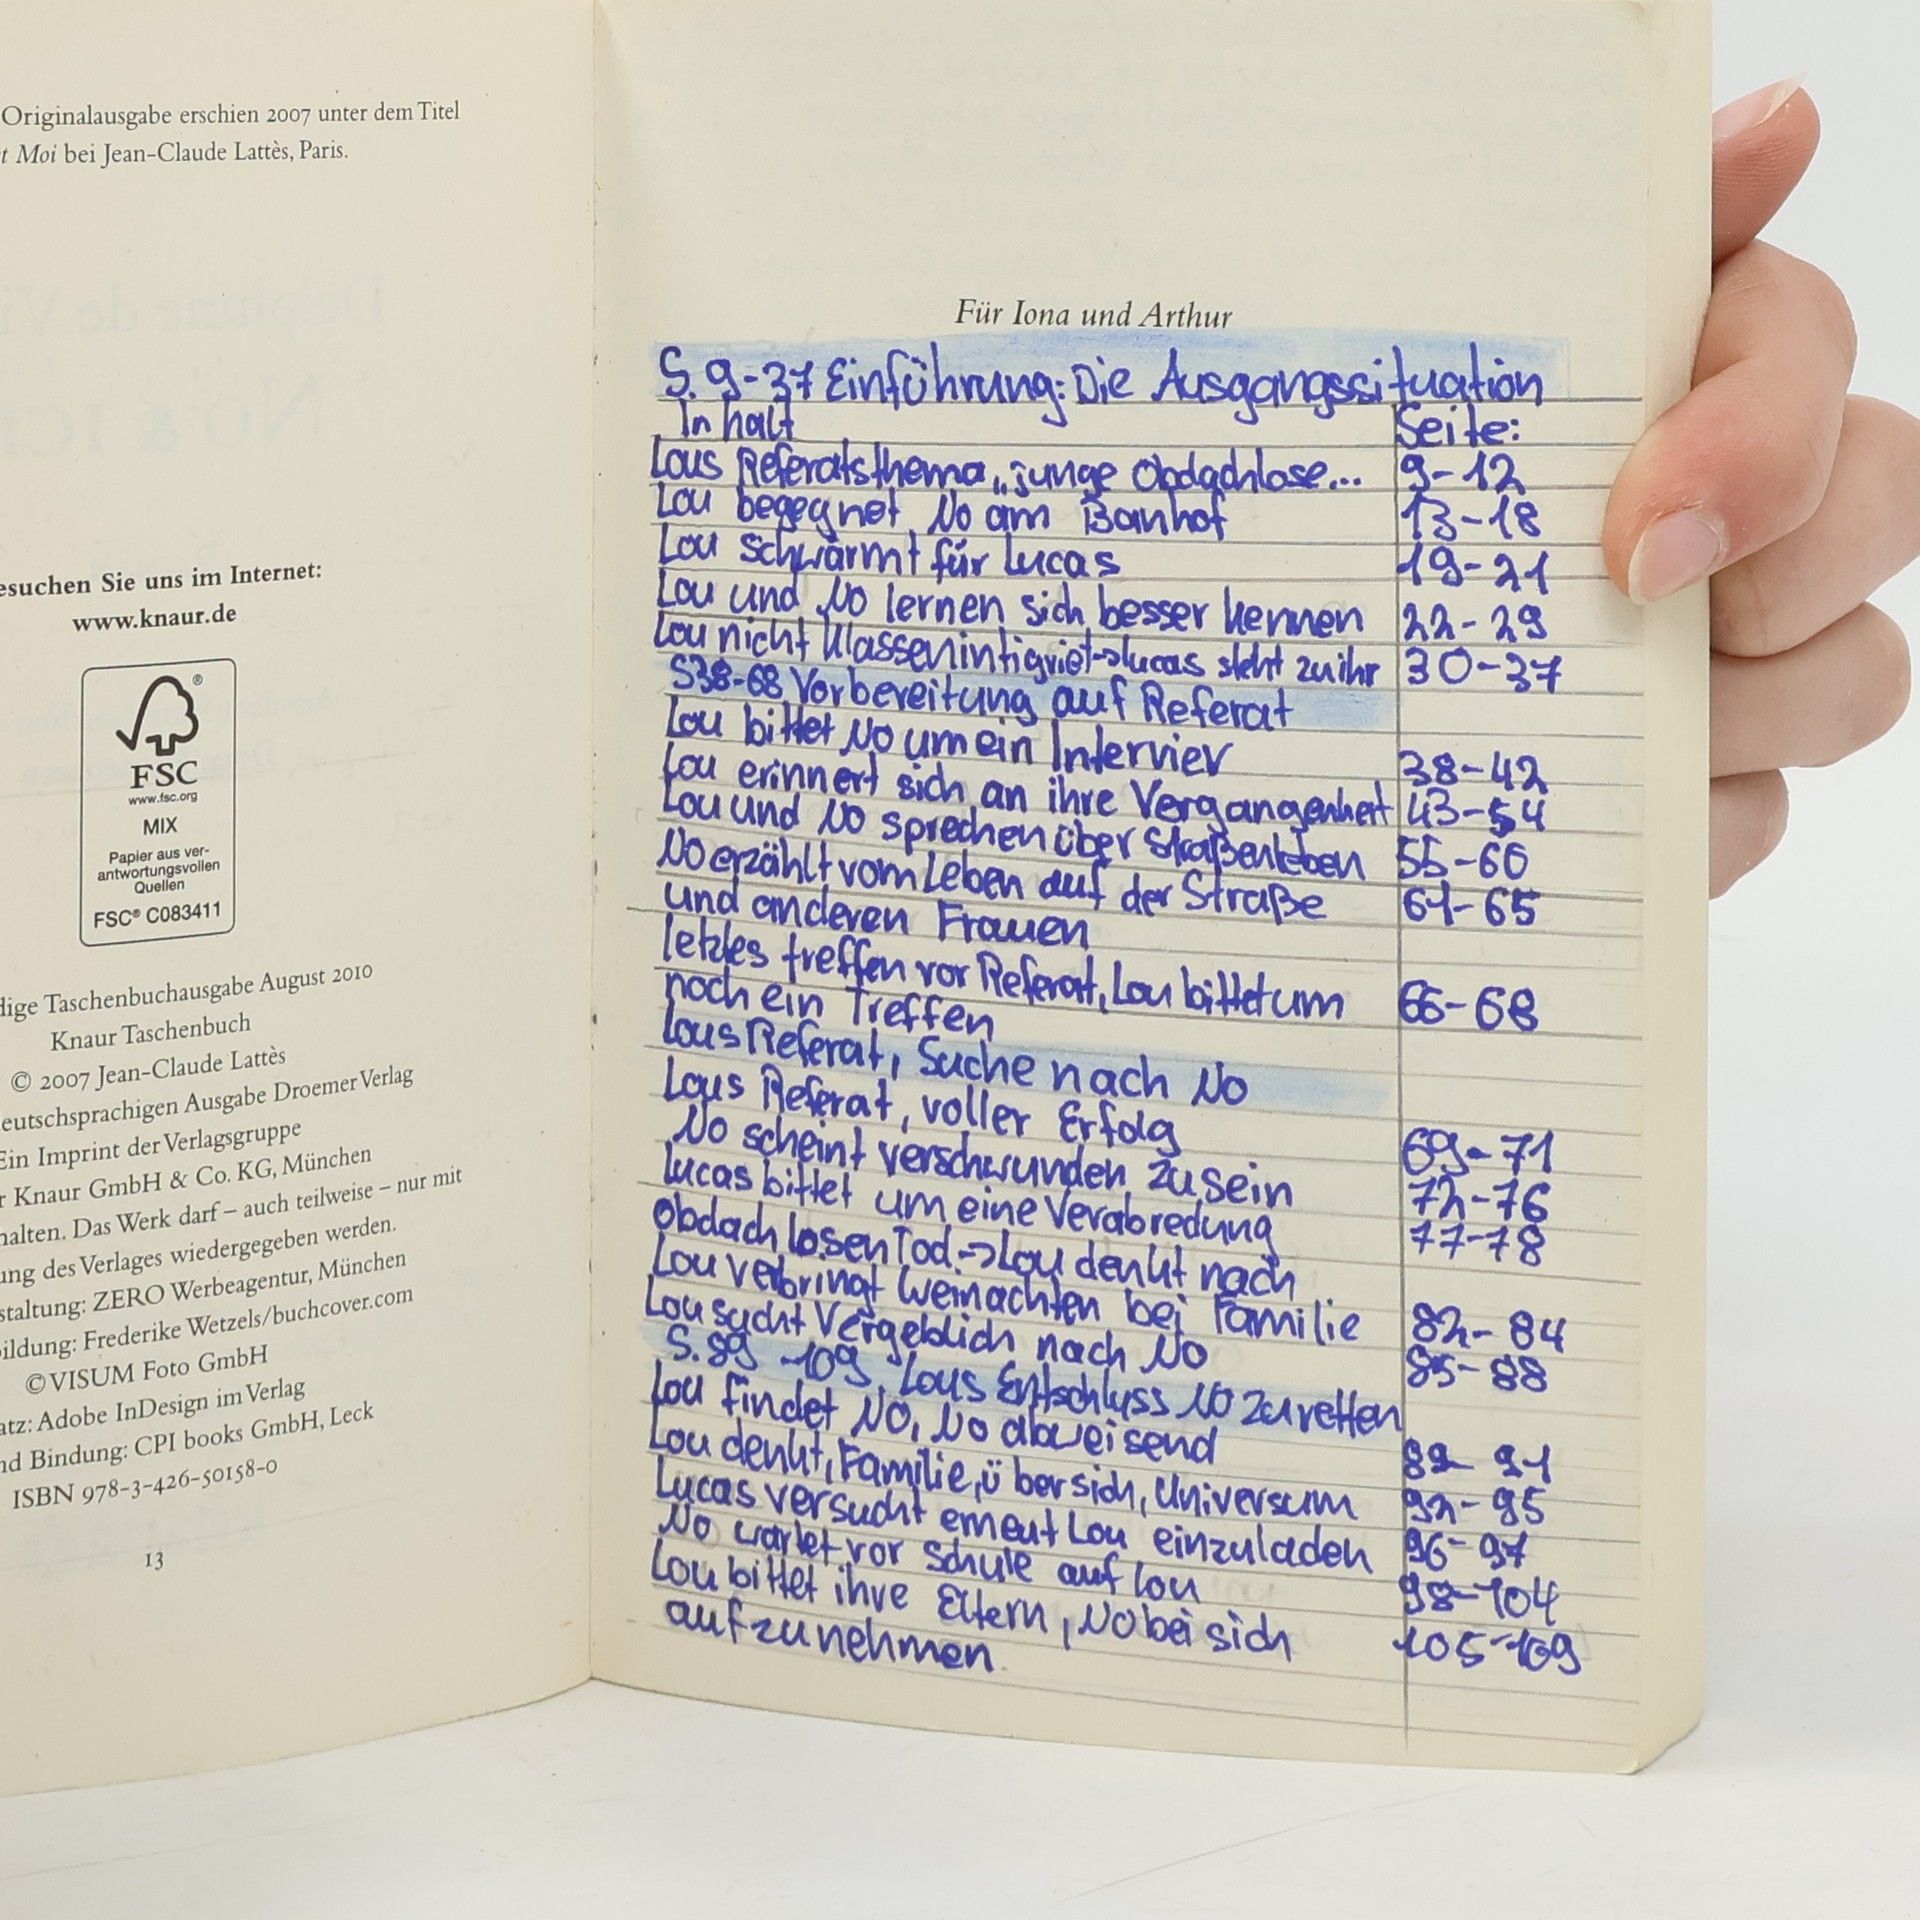 Originalausgabe erschien 2007 unter dem Titel
t Moi bei Jean-Claude Lattès, Paris.
esuchen Sie uns im Internet:
www.knaur.de
®
FSC
www.fsc.org
MIX
Papier aus ver-
antwortungsvollen
Quellen
FSC® C083411
dige Taschenbuchausgabe August 2010
Knaur Taschenbuch
© 2007 Jean-Claude Lattès
eutschsprachigen Ausgabe Droemer Verlag
Ein Imprint der Verlagsgruppe
r Knaur GmbH & Co. KG, München
halten. Das Werk darf – auch teilweise – nur mit
ung des Verlages wiedergegeben werden.
staltung: ZERO Werbeagentur, München
bildung: Frederike Wetzels/buchcover.com
©VISUM Foto GmbH
atz: Adobe InDesign im Verlag
nd Bindung: CPI books GmbH, Leck
ISBN 978-3-426-50158-0
13
Für Iona und Arthur
S. 9-37 Einführung: Die Ausgangssituation
Inhalt Seite:
Lous Referatsthema „junge Obdachlose... 9-12
Lou begegnet No am Banhof 13-18
Lou schwärmt für Lucas 19-21
Lou und No lernen sich besser kennen 22-29
Lou nicht Klassenintigriet->Lucas steht zu ihr 30-37
S38-68 Vorbereitung auf Referat
Lou bittet No um ein Intervier 38-42
Lou erinnert sich an ihre Vergangenheit 43-54
Lou und No sprechen über Straßenleben 55-60
No erzählt vom Leben auf der Straße 61-65
und anderen Frauen
letztes treffen vor Referat, Lou bittet um 66-68
noch ein Treffen
Lous Referat, Suche nach No
Lous Referat, voller Erfolg 69-71
No scheint verschwunden zu sein 72-76
Lucas bittet um eine Verabredung 77-78
Obdachlosen Tod -> Lou denkt nach
Lou verbringt Weinachten bei Familie 82-84
Lou sucht Vergeblich nach No 85-88
S. 89-109 Lous Entschluss No zu retten
Lou findet No, No abweisend 89-91
Lou denkt, Familie, über sich, Universum 92-95
Lucas versucht erneut Lou einzuladen 96-97
No wartet vor Schule auf Lou 98-104
Lou bittet ihre Eltern, No bei sich 105-109
aufzunehmen